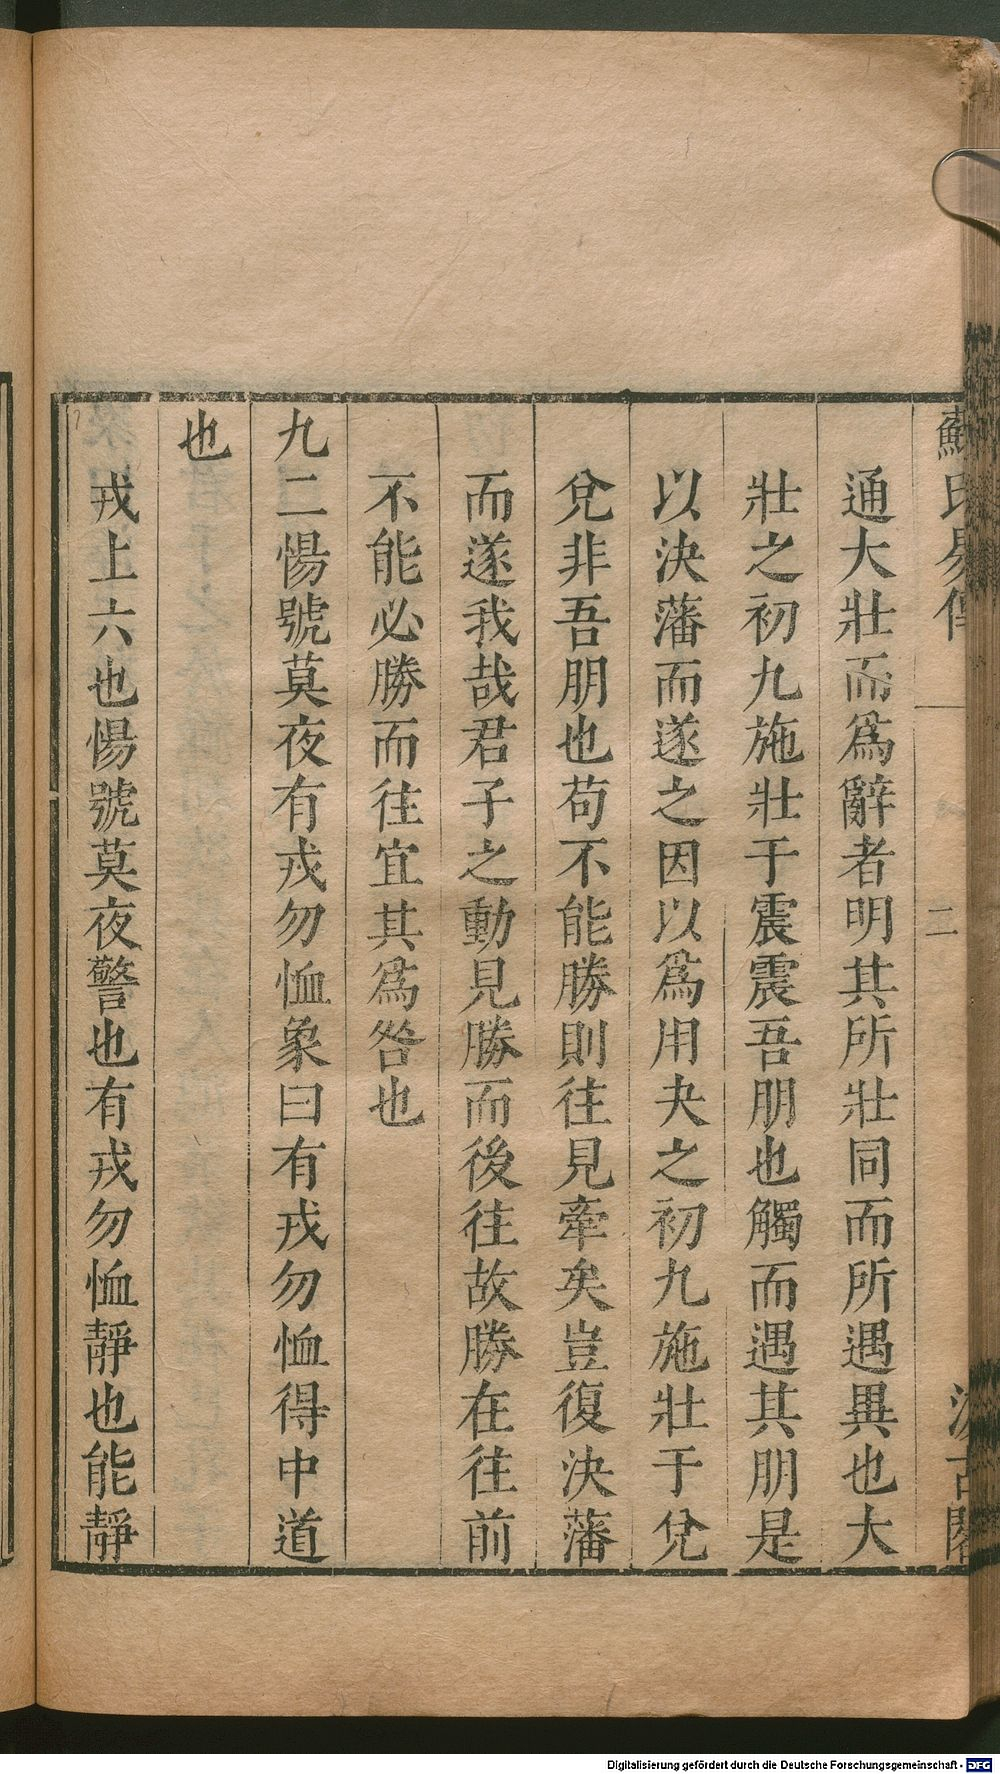 蘇氏易傳 二 汲古閣
通大壯而爲辭者明其所壯同而所遇異也大
壯之初九施壯于震震吾朋也觸而遇其朋是
以決藩而遂之因以爲用夬之初九施壯于兌
兌非吾朋也苟不能勝則往見牽矣豈復決藩
而遂我哉君子之動見勝而後往故勝在往前
不能必勝而往宜其爲咎也
九二惕號莫夜有戎勿恤象曰有戎勿恤得中道
也
戎上六也惕號莫夜警也有戎勿恤靜也能靜
Digitalisierung gefördert durch die Deutsche Forschungsgemeinschaft - DFG